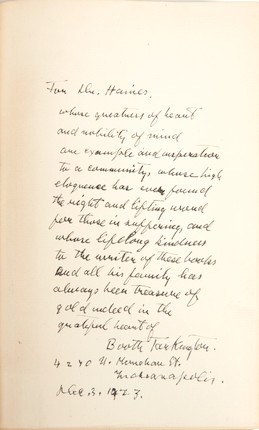 For Dr. Haines,
whose greatness of heart
and nobility of mind
are example and inspiration
to a community; whose high
eloquence has ever found
the right and lifting word
for those in suffering, and
whose lifelong kindness
to the writer of these books
and all his family has
always been treasure of
gold indeed in the
grateful heart of
Booth Tarkington.
4270 N. Meridian St.
Indianapolis.
Dec. 3. 1923.